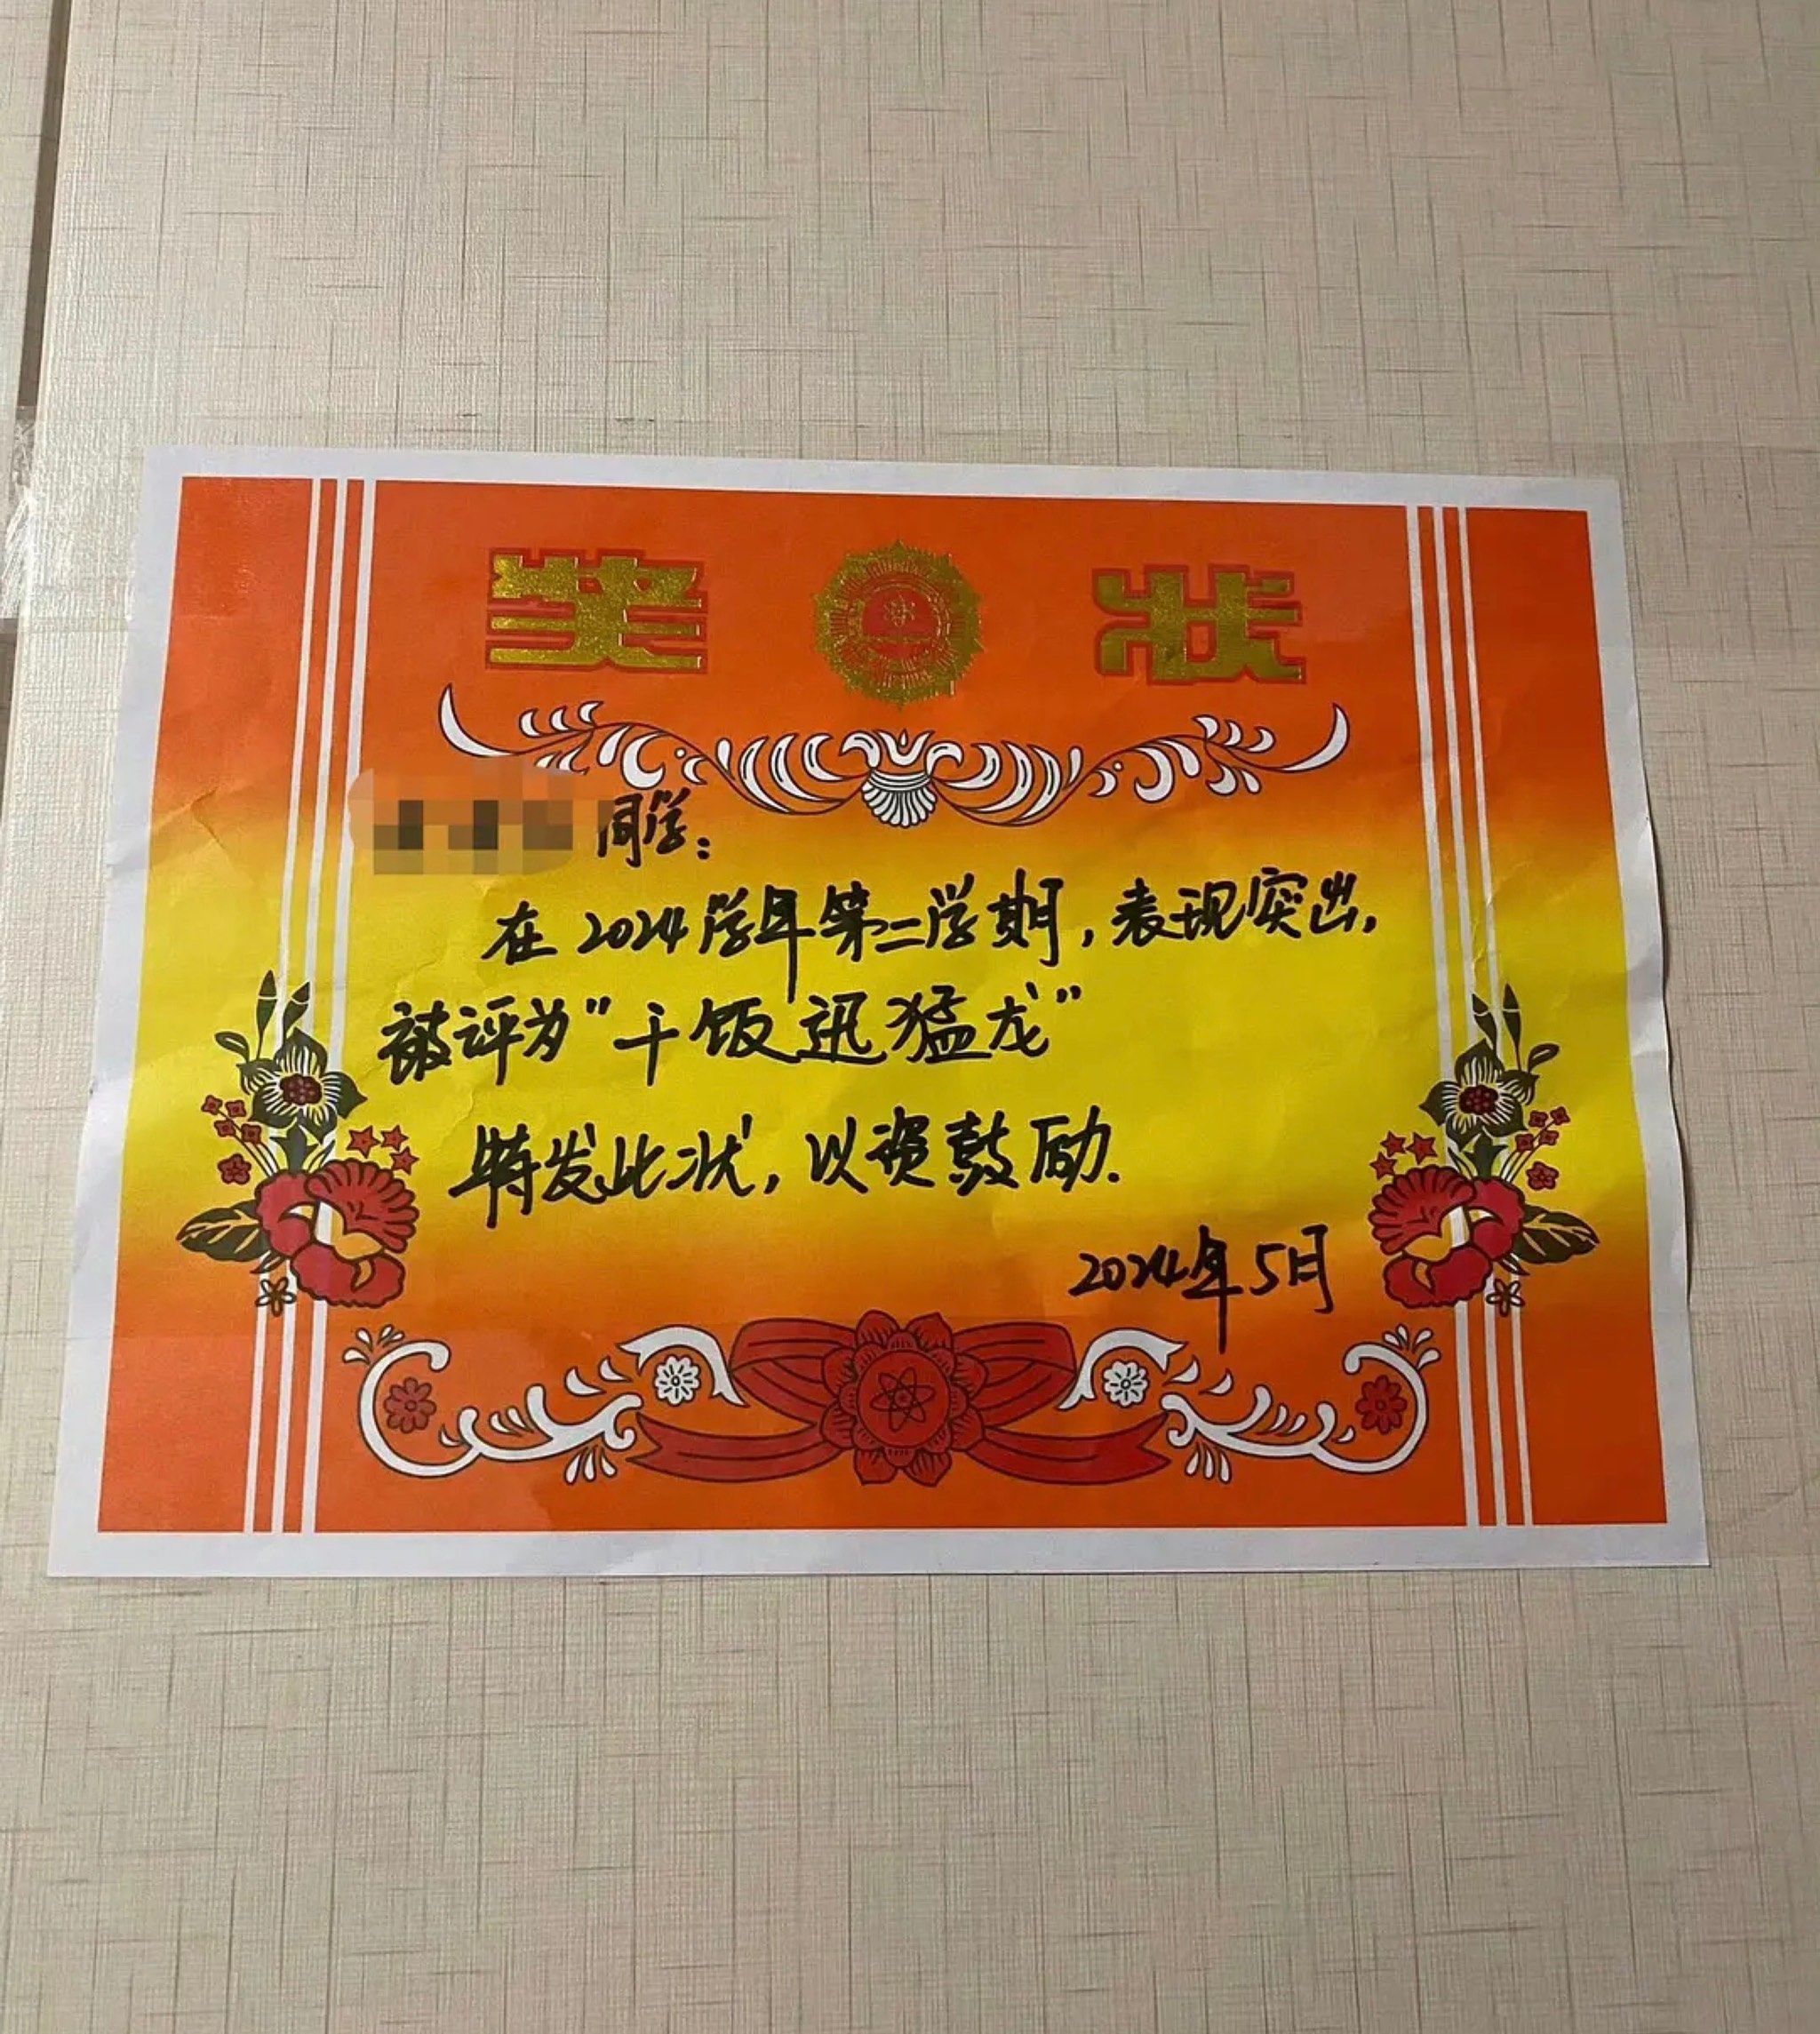 奖状
同学：
在2024学年第二学期，表现突出，
被评为"干饭迅猛龙"
特发此状，以资鼓励.
2024年5月